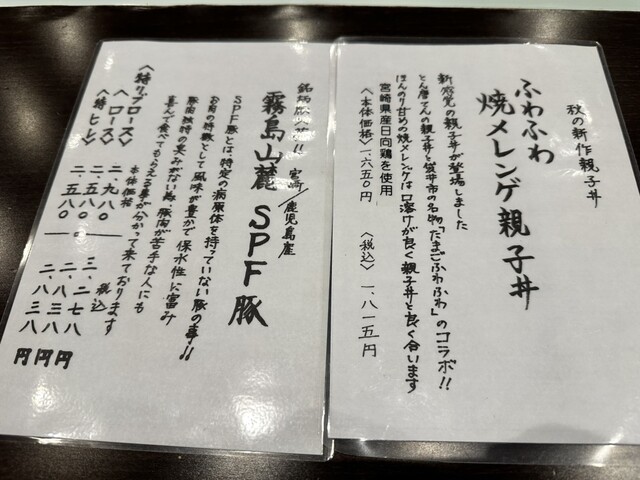 秋の新作親子丼
ふわふわ
焼メレンゲ親子丼
新感覚の親子丼が登場しました
とん唐てんの親子丼と袋井市の名物「たまごふわふわ」のコラボ!!
ほんのり甘めの焼メレンゲは口溶けが良く親子丼と良く合います
宮崎県産日向鶏を使用
〈本体価格〉一、六五〇円 〈税込〉一、八一五円
銘柄豚入荷!! 宮崎/鹿児島産
霧島山麓 SPF豚
SPF豚とは特定の病原体を持っていない豚の事!!
お肉の特徴として風味が豊かで保水性に富み
豚肉独特の臭みがない為、豚肉が苦手な人にも
喜んで食べてもらえる事が分かって来ております
本体価格 税込
〈特リブロース〉 二、九八〇 三、二七八円
〈ロース〉 二、五八〇 二、八三八円
〈特ヒレ〉 二、五八〇 二、八三八円